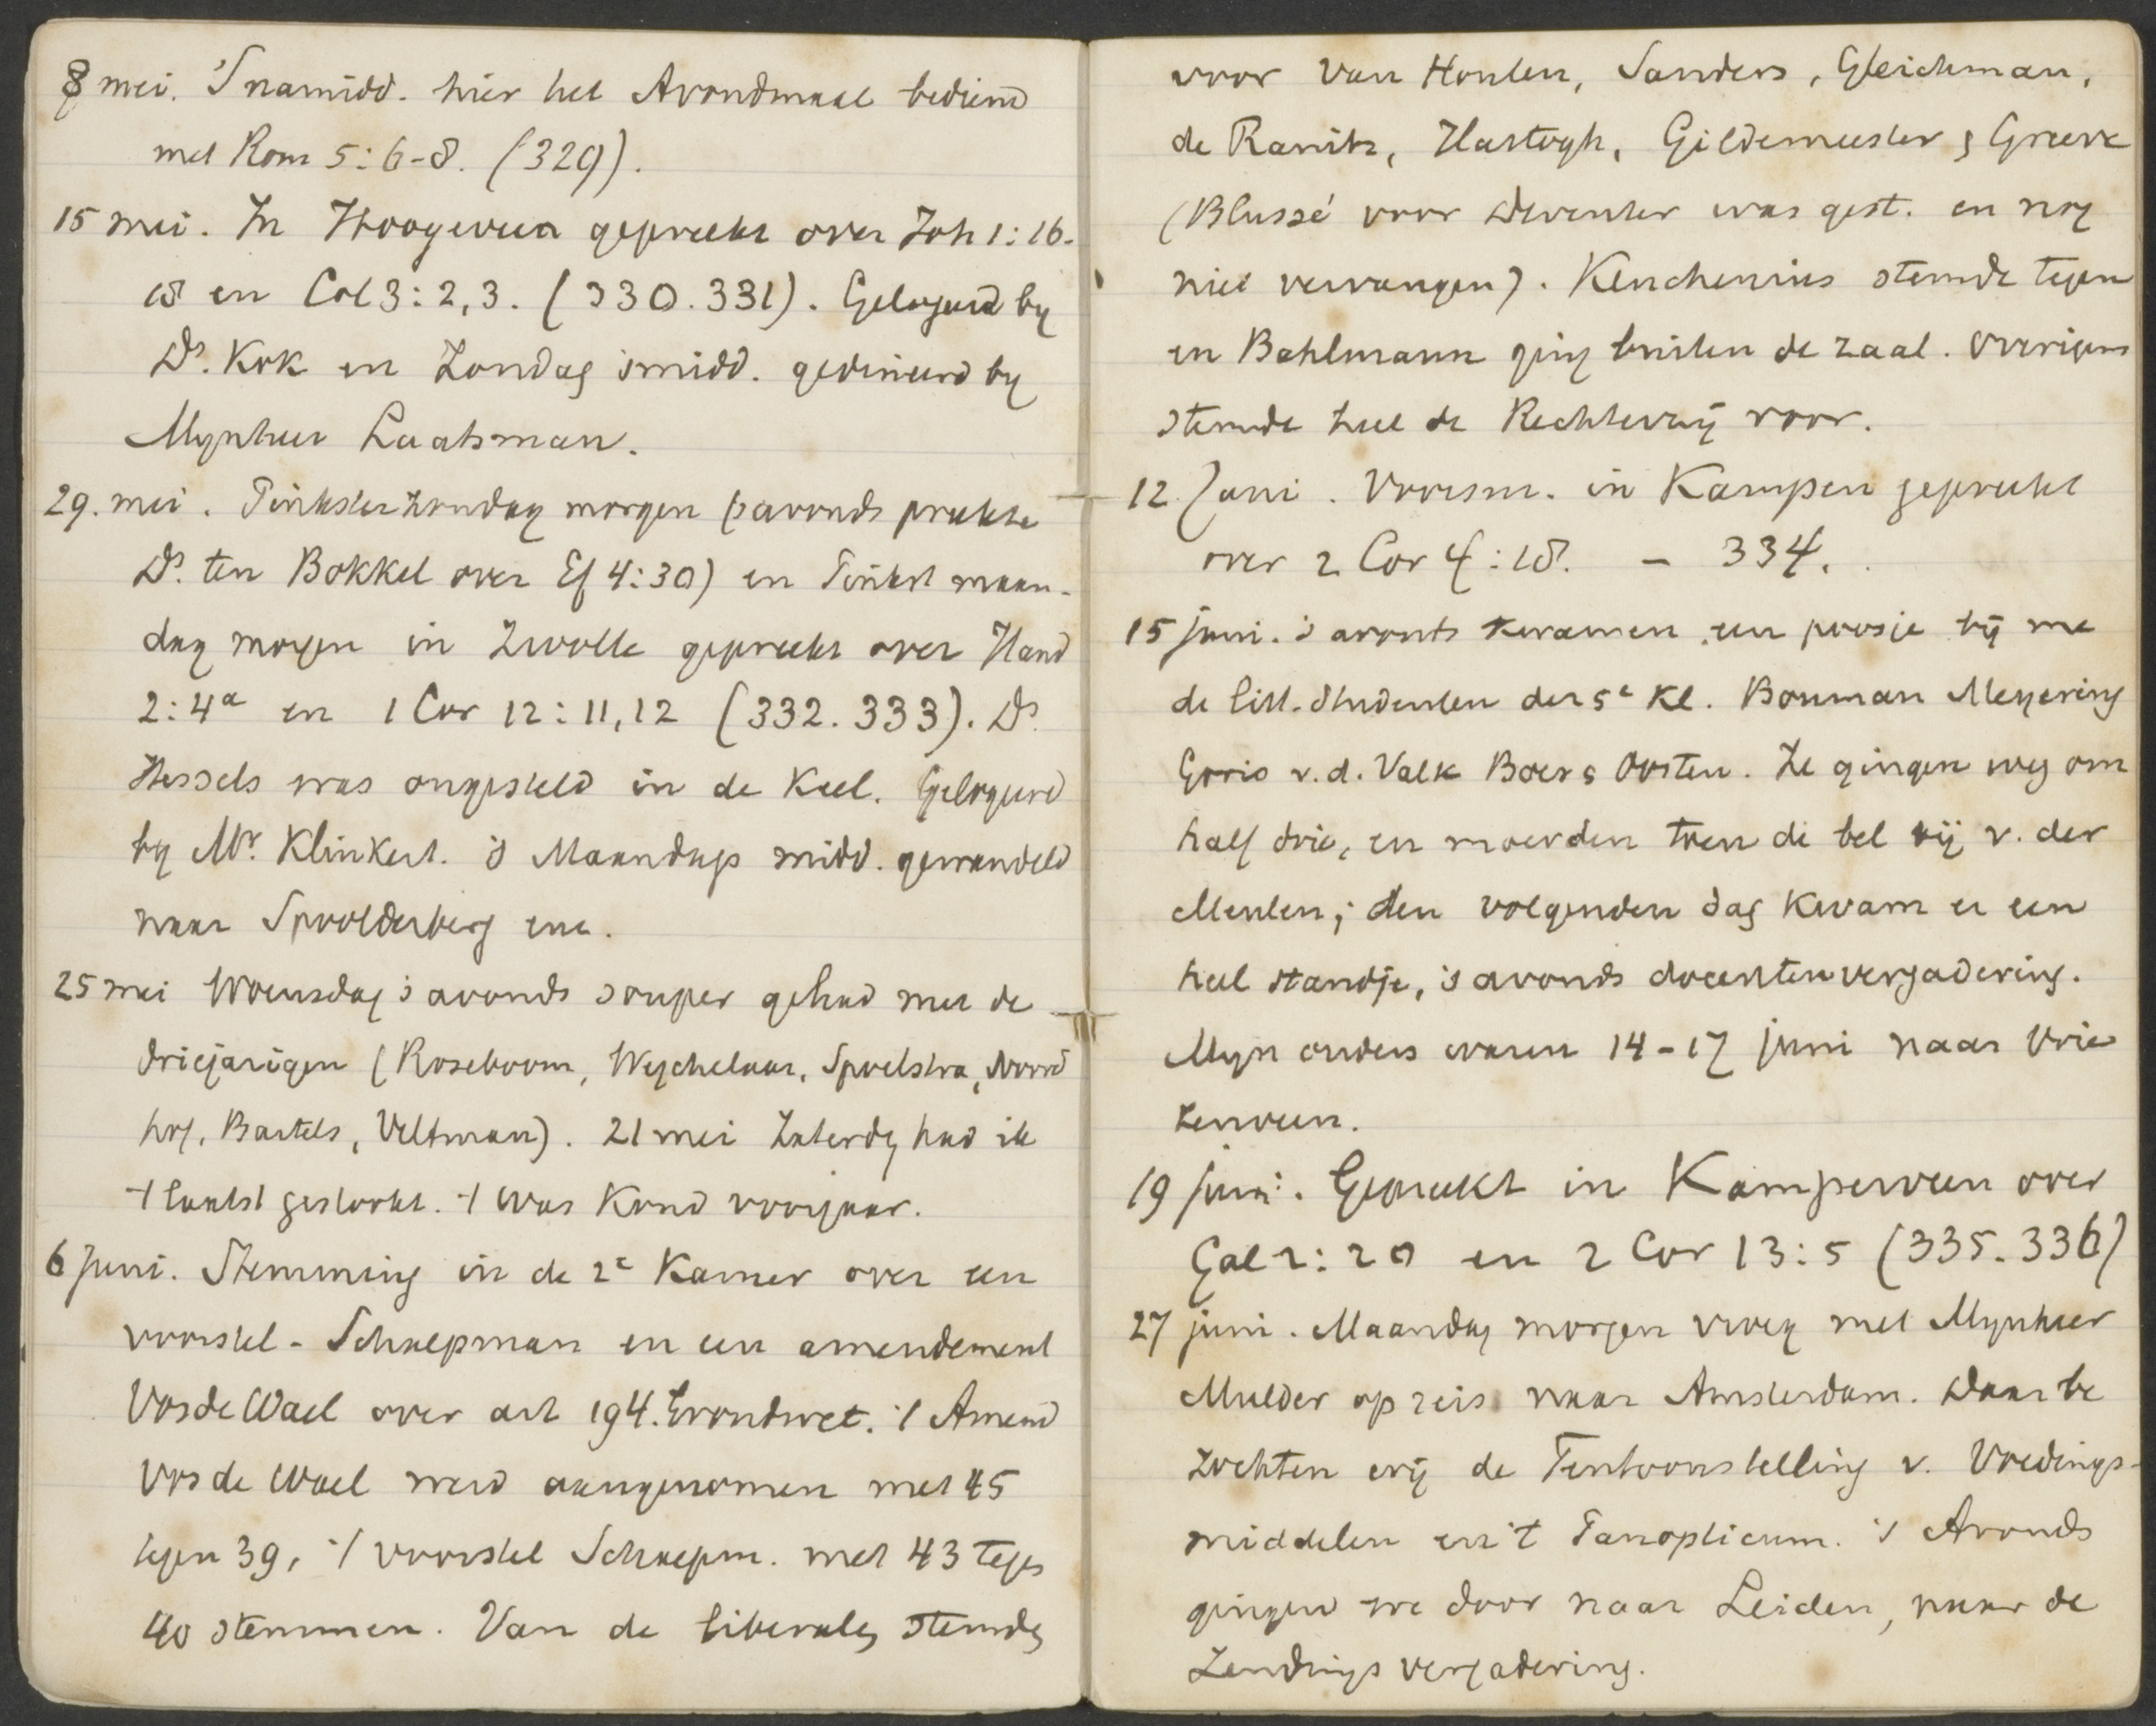 8 mei. 'Snamidd. hier het Avondmaal bediend
met Rom 5:6-8. (329).
15 mei. In Hoogeveen gepreekt over Joh 1:16-
18 en Col 3:2,3. (330.331). Gelogeerd by
Ds. Kok en Zondag smidd. gedineerd by
Mynheer Laatsman.
29. mei. Pinksterzondag morgen (savonds preekte
Ds. ten Bokkel over Ef 4:30) en Pinkst maan-
dag morgen in Zwolle gepreekt over Hand
2:4a en 1 Cor 12:11,12 (332.333). Ds.
Hessels was ongesteld in de keel. Gelogeerd
by Mr. Klinkert. 's Maandags midd. gewandeld
naar Spoolderberg enz.
25 mei Woensdag 's avonds souper gehad met de
driejarigen (Roseboom, Wychelaar, Spoelstra, Noord
hof, Bartels, Veltman). 21 mei Zaterdg had ik
't laatst gestookt. 't Was koud voorjaar.
6 juni. Stemming in de 2e Kamer over een
voorstel-Schaepman en een amendement
Vos de Wael over art 194. Grondwet. 't Amend
Vos de Wael werd aangenomen met 45
tegen 39, 't voorstel Schaepm. met 43 tegen
40 stemmen. Van de liberalen stemden
voor Van Houten, Sanders, Gleichman,
de Ranitz, Hartogh, Gildemeester & Greeve
(Blussé voor Deventer was gest. en nog
niet vervangen). Keuchenius stemde tegen
en Bahlmann ging buiten de zaal. Overigens
stemde heel de Rechterzij voor.
12 Juni. Voorsm. in Kampen gepreekt
over 2 Cor 4:18. - 334.
15 juni. 's avonts kwamen een poosje bij me
de litt. studenten der 5e kl. Bouman Meyering
Gooris v.d. Valk Boers Oosten. Ze gingen weg om
half drie, en moerden toen de bel bij v. der
Meulen; den volgenden dag kwam er een
heel standje, 's avonds docentenvergadering.
Myn ouders waren 14-17 juni naar Vrie
zenveen.
19 juni. Gepreekt in Kamperveen over
Gal 2:20 en 2 Cor 13:5 (335.336)
27 juni. Maandag morgen vroeg met Mynheer
Mulder op reis naar Amsterdam. Daar be
zochten wij de Tentoonstelling v. Voedings-
middelen en 't Panopticum. 's Avonds
gingen we door naar Leiden, naar de
Zendings vergadering.